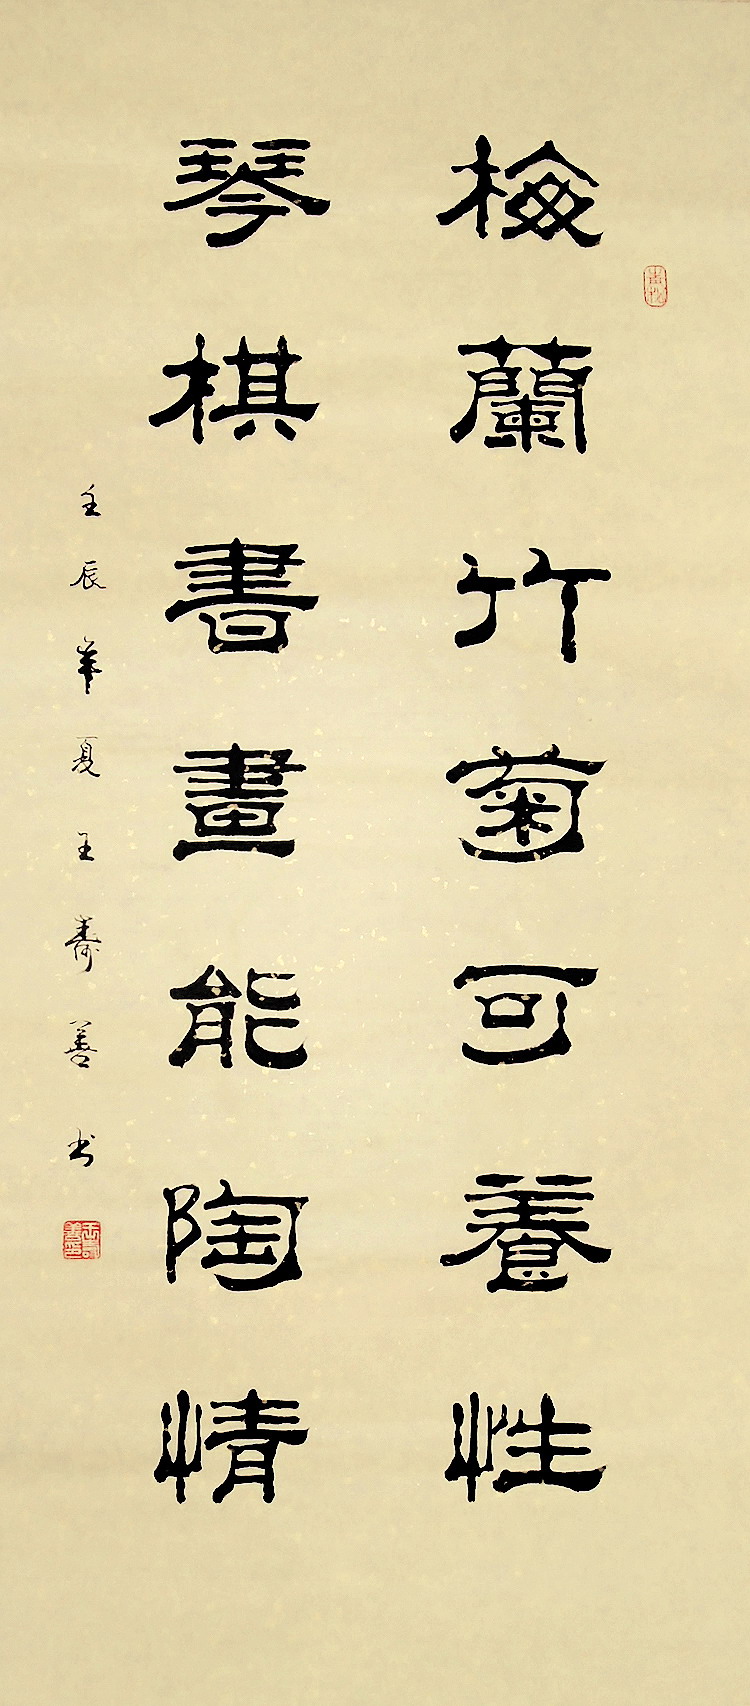 梅蘭竹菊可養性
琴棋書畫能陶情
壬辰夏王壽善书
王壽善印